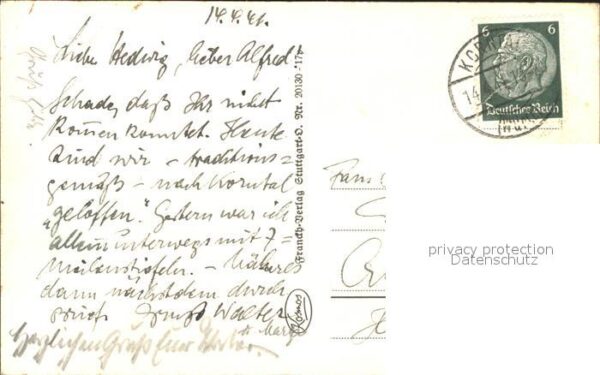 14.4.41.
Liebe Hedwig, lieber Alfred
Schade, daß Ihr nicht
kommen konntet. Heute
sind wir – traditions=
gemäß – nach Korntal
„geloffen“. Gestern war ich
allein unterwegs mit 7=
meilenstiefeln. – Näheres
dann nächstdem durch
Walter
u. Marg
Herzlichen Gruß Eure
Franckh-Verlag Stuttgart-O. Nr. 20130-117
Kosmos
Fam.
6 6
Deutsches Reich
KO
14.
privacy protection
Datenschutz